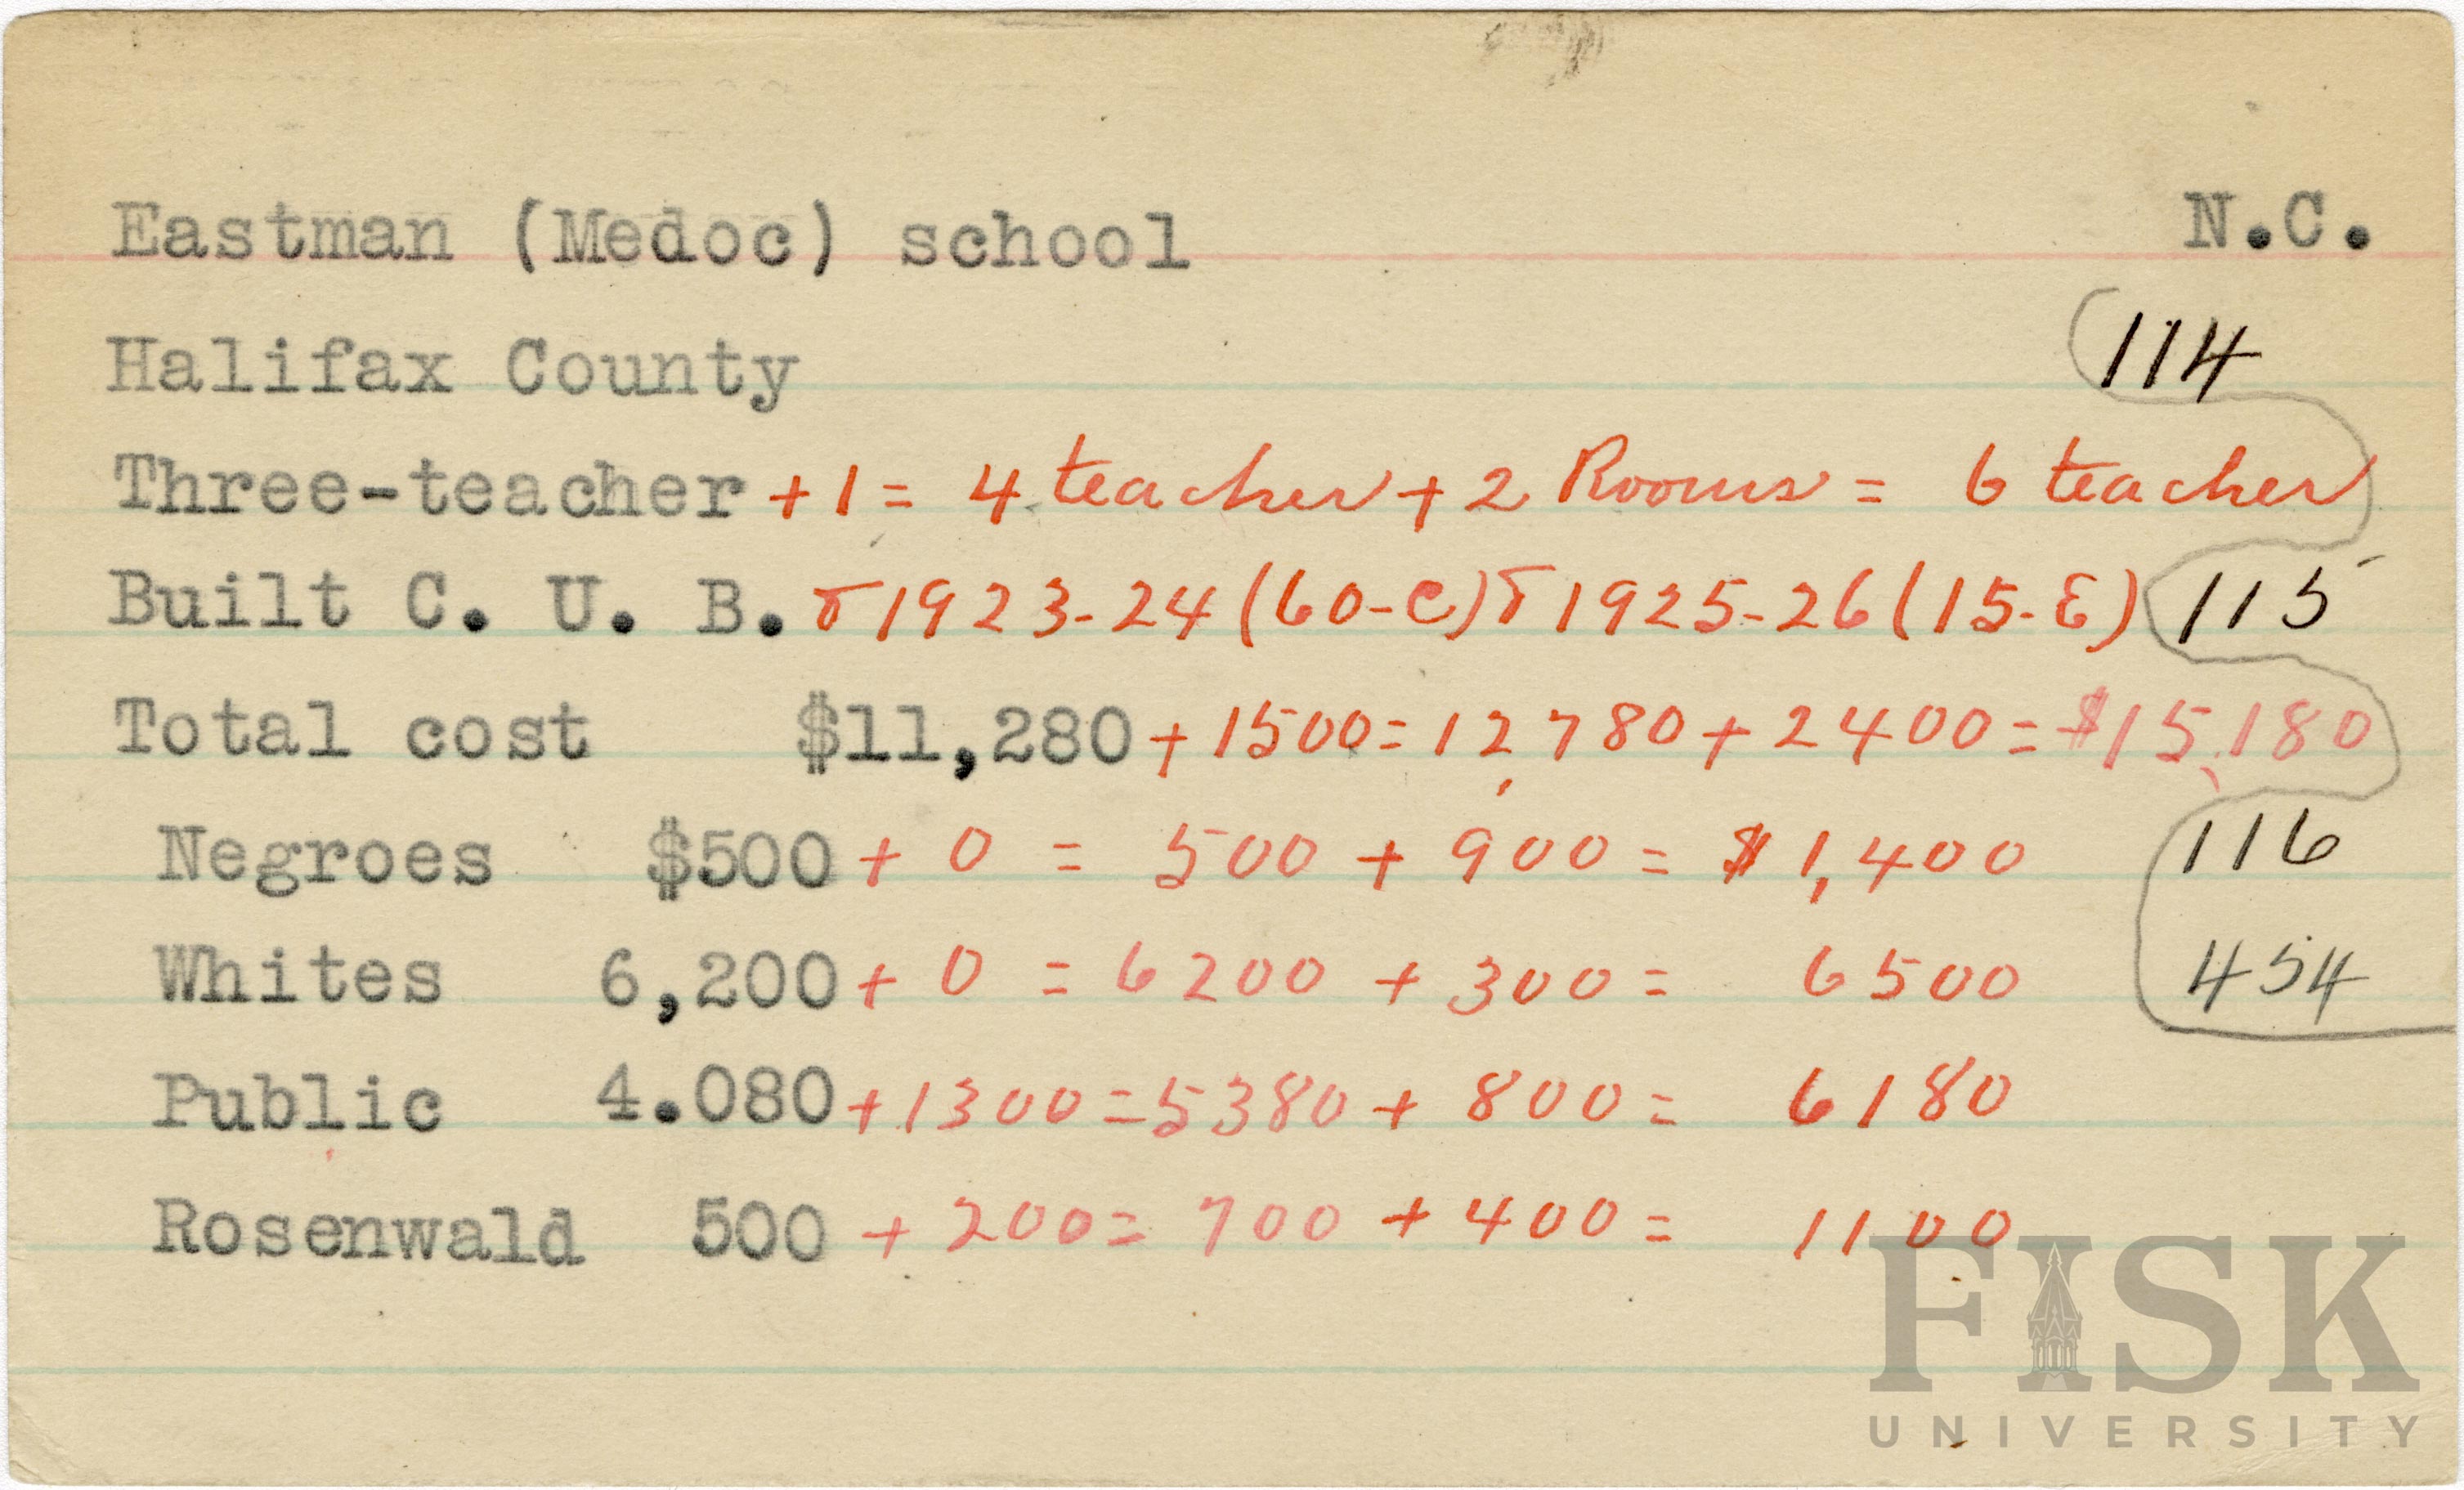 Eastman (Medoc) school N.C.
Halifax County 114
Three-teacher + 1 = 4 teacher + 2 Rooms = 6 teacher
Built C. U. B. & 1923-24 (60-C) & 1925-26 (15-E) 115
Total cost $11,280 + 1500 = 12,780 + 2400 = $15,180
Negroes $500 + 0 = 500 + 900 = $1,400 116
Whites 6,200 + 0 = 6200 + 300 = 6500 454
Public 4.080 + 1300 = 5380 + 800 = 6180
Rosenwald 500 + 200 = 700 + 400 = 1100
FISK
UNIVERSITY